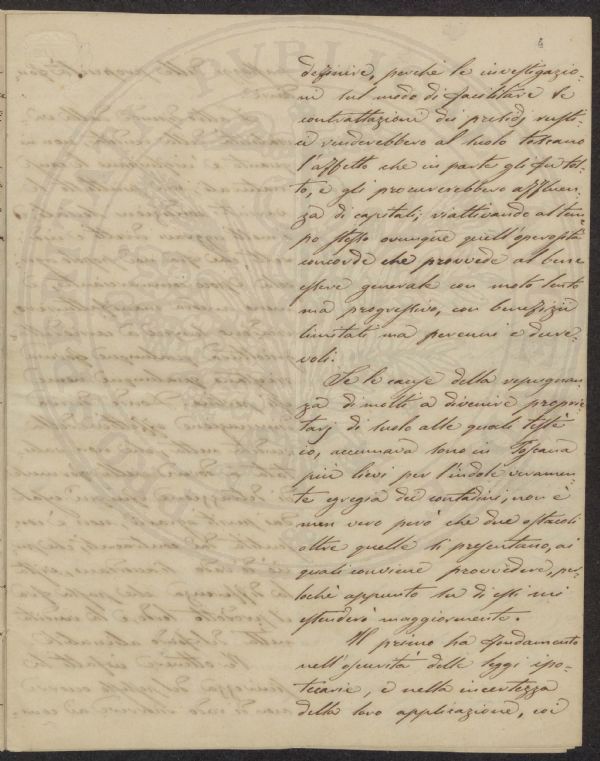 6
definire, perchè le investigazio-
ni sul modo di facilitare le
contrattazione dei predj rusti-
ci renderebbero al suolo toscano
l'affetto che in parte gli fu tol-
to, e gli procurerebbero affluen-
za di capitali, riattivando al tem-
po stesso ovunque quell'operosità
concorde che provvede al bene
essere generale con moto lento
ma progressivo, con benefizii
limitati ma perenni e dure-
voli.
Se le cause della repugnan-
za di molti a divenire proprie-
tarj di suolo alle quali testè
io, accennava sono in Toscana
più lievi per l'indole veramen-
te egregia dei contadini, non è
men vero però che due ostacoli
oltre quelle si presentano, ai
quali conviene provvedere, per-
lochè appunto su di essi mi
estenderò maggiormente.
Il primo ha fondamento
nell'oscurità delle leggi ipo-
tecarie, e nella incertezza
della loro applicazione, coi